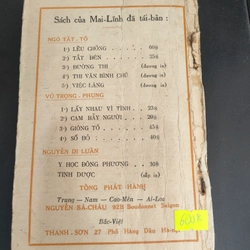 Sách của Mai-Lĩnh đã tái-bản :
NGÔ TẤT, TỐ
1·) LỀU CHÕNG . . . 60$
2·) TẮT ĐÈN . . . 25$
3·) ĐƯỜNG THI . . . (đương in)
4·) THI VĂN BÌNH CHÚ (đương in)
5·) VIỆC LÀNG . . . (đương in)
VŨ TRỌNG - PHỤNG
1·) LẤY NHAU VÌ TÌNH .
2·) CẠM BẪY NGƯỜI . .
3·) GIÔNG TỐ . . . 45$
4·) SỐ ĐỎ . . .
NGUYỄN DI LUÂN
Y HỌC ĐÔNG PHƯƠNG . 30$
TINH DƯỢC
TỔNG PHÁT HÀNH
Trung - Nam - Cao-Mên - Ai-Lao
NGUYỄN BÁ-CHÂU 92B Boudonnet Saigon
Bắc-Việt
THANH-SƠN 27 Phố Hàng Đàn Hanoi
600k